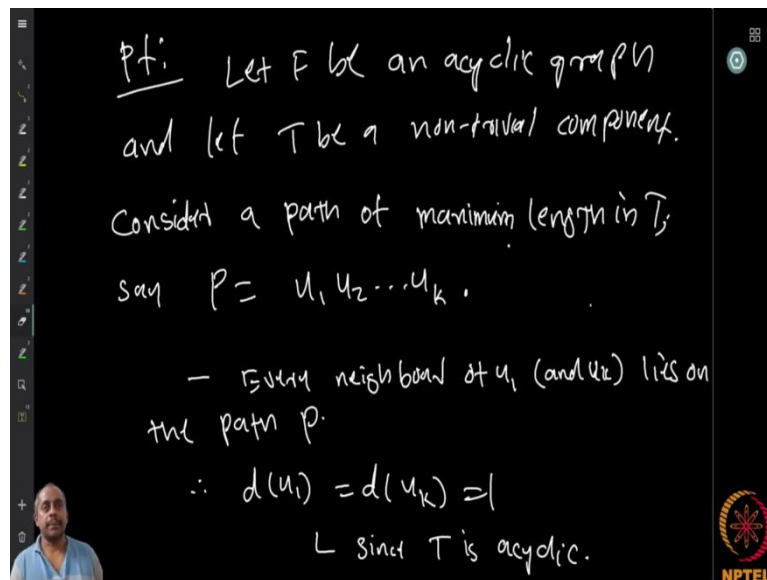 Pf: Let F be an acyclic graph
and let T be a non-trival component.
Consider a path of maximum length in T,
say P = u₁ u₂ ... uₖ .
- Every neighbour of u₁ (and uₖ) lies on
the path P.
∴ d(u₁) = d(uₖ) = 1
L since T is acyclic.
NPTEL